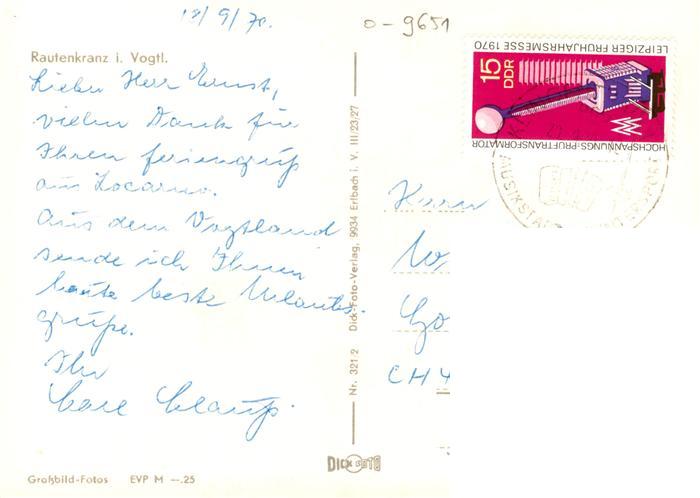 18/9/70.
0-9651
Rautenkranz i. Vogtl.
Lieber Herr Ernst,
vielen Dank für
Ihren Feriengruß
aus Locarno.
Aus dem Vogtland
sende ich Ihnen
heute beste Urlaubs-
grüße.
Ihr
Großbild-Fotos EVP M —.25
Nr. 321 2 Dick-Foto-Verlag, 9934 Erlbach i. V. III/23/27
DICK FOTO
LEIPZIGER FRÜHJAHRSMESSE 1970
15 DDR
HOCHSPANNUNGS-PRÜFTRANSFORMATOR
MM
Herrn
W
Go
CH 4